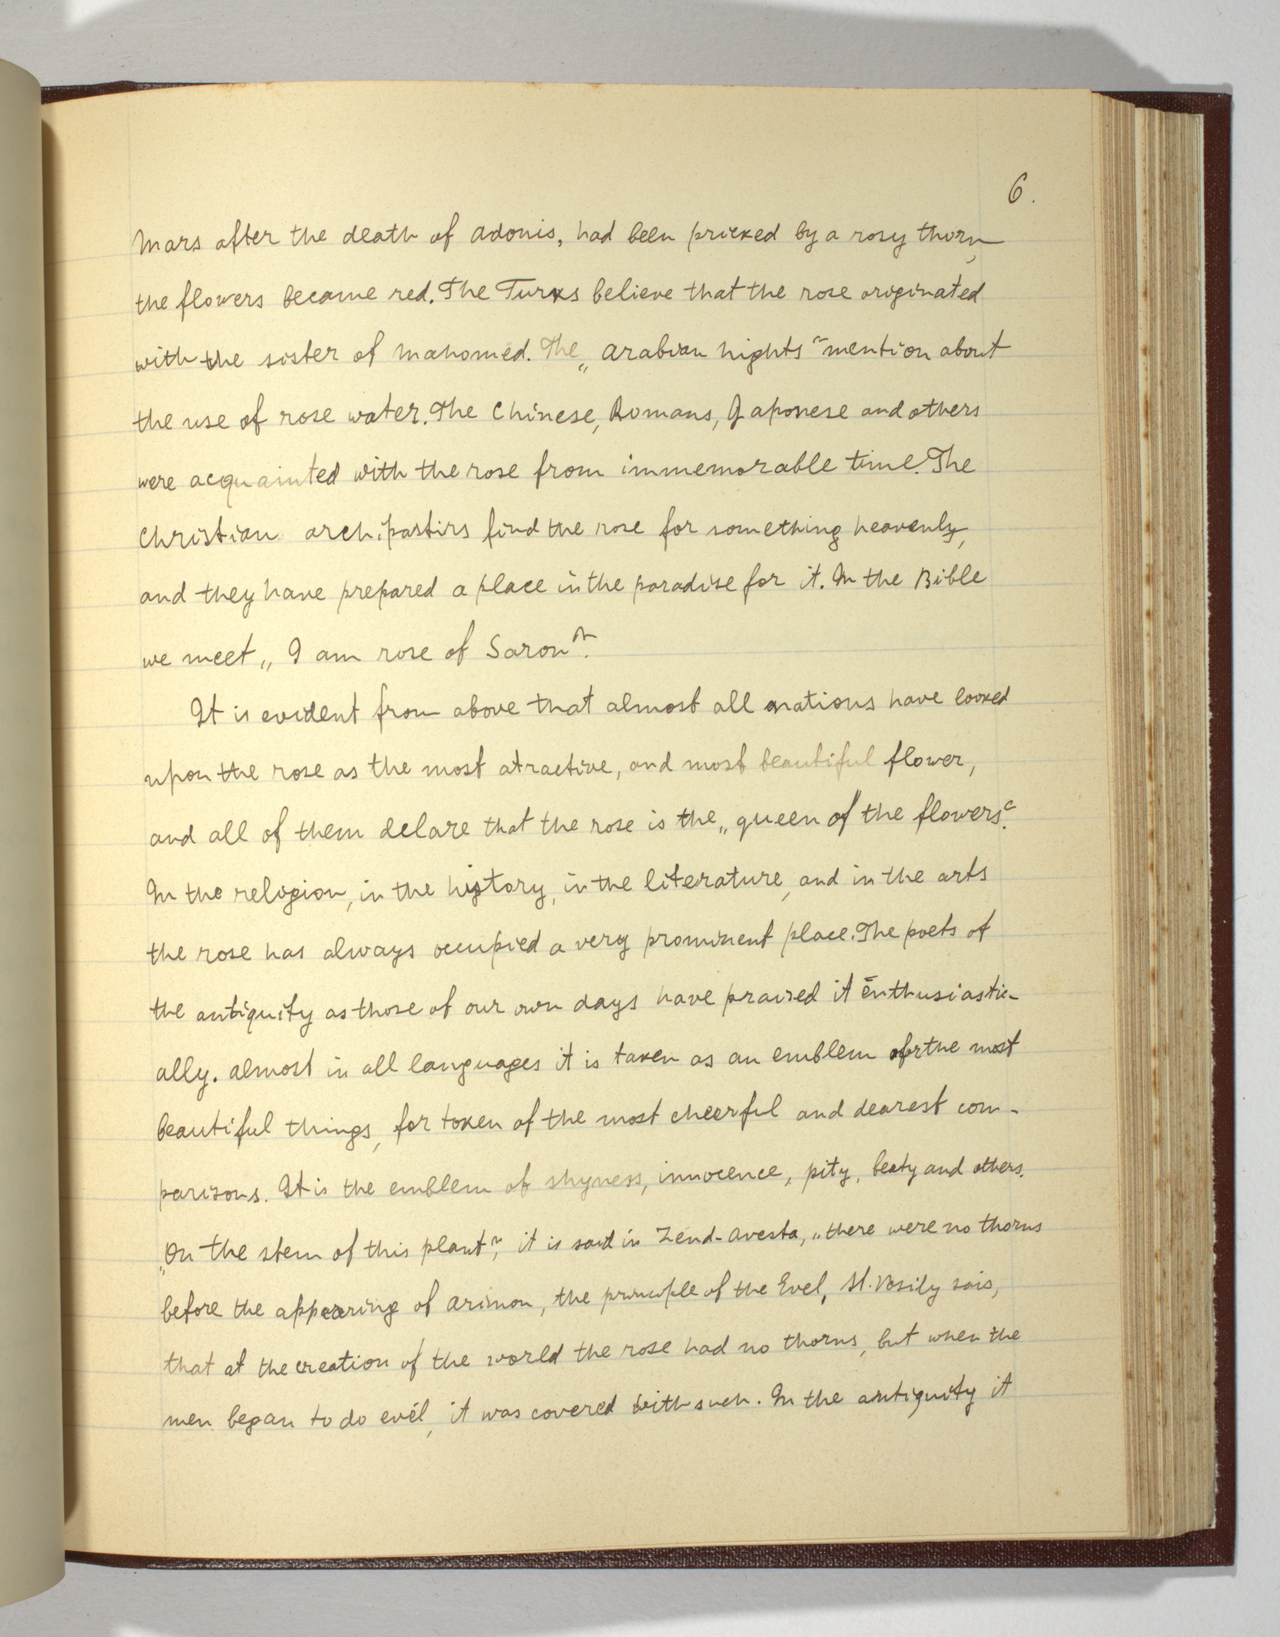 6.
Mars after the death of Adonis, had been pricked by a rosy thorn,
the flowers became red. The Turks believe that the rose originated
with the sister of Mahomed. The „Arabian Nights“ mention about
the use of rose water. The Chinese, Romans, Japonese and others
were acquainted with the rose from immemorable time. The
Christian arch.pastirs find the rose for something heavenly,
and they have prepared a place in the paradise for it. In the Bible
we meet „I am rose of Saron“.
It is evident from above that almost all nations have looked
upon the rose as the most atractive, and most beautiful flower,
and all of them delare that the rose is the „queen of the flowers“.
In the religion, in the history, in the literature, and in the arts
the rose has always occupied a very prominent place. The poets of
the antiquity as those of our own days have praised it enthusiastic-
ally. Almost in all languages it is taken as an emblem for the most
beautiful things, for token of the most cheerful and dearest com-
parisons. It is the emblem of shyness, innocence, pity, beaty and others.
„On the stem of this plant“, it is said in Zend-Avesta, „there were no thorns
before the appearing of Arimon, the principle of the Evel, St. Vasily sais,
that at the creation of the world the rose had no thorns, but when the
men began to do evel, it was covered with such. In the antiquity it